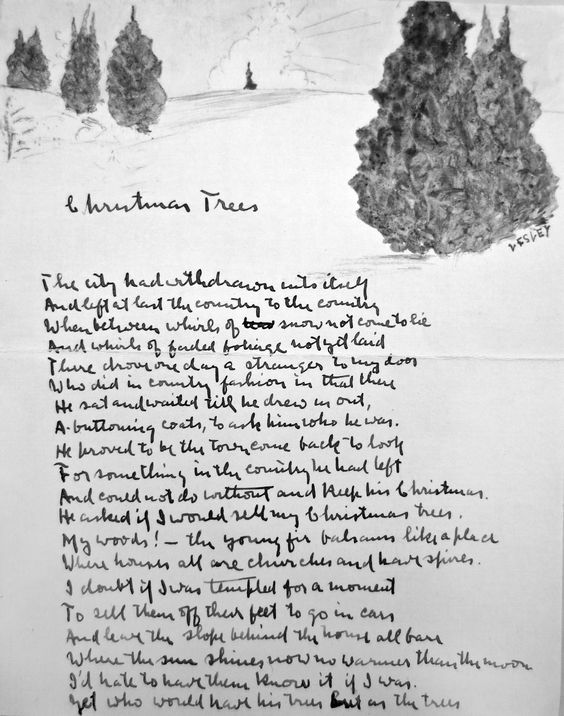 Christmas Trees
LESLEY
The city had withdrawn into itself
And left at last the country to the country
When between whirls of snow not come to lie
And whirls of faded foliage not yet laid
There drove one day a stranger to my door
Who did in country fashion in that there
He sat and waited till he drew us out,
A-buttoning coats, to ask him who he was.
He proved to be the town come back to look
For something in the country he had left
And could not do without and keep his Christmas.
He asked if I would sell my Christmas trees.
My woods! — the young fir balsams like a place
Where houses all are churches and have spires.
I doubt if I was tempted for a moment
To sell them off their feet to go in cars
And leave the slope behind the house all bare
Where the sun shines now no warmer than the moon
I'd hate to have them know it if I was.
Yet who would have his trees but as the trees